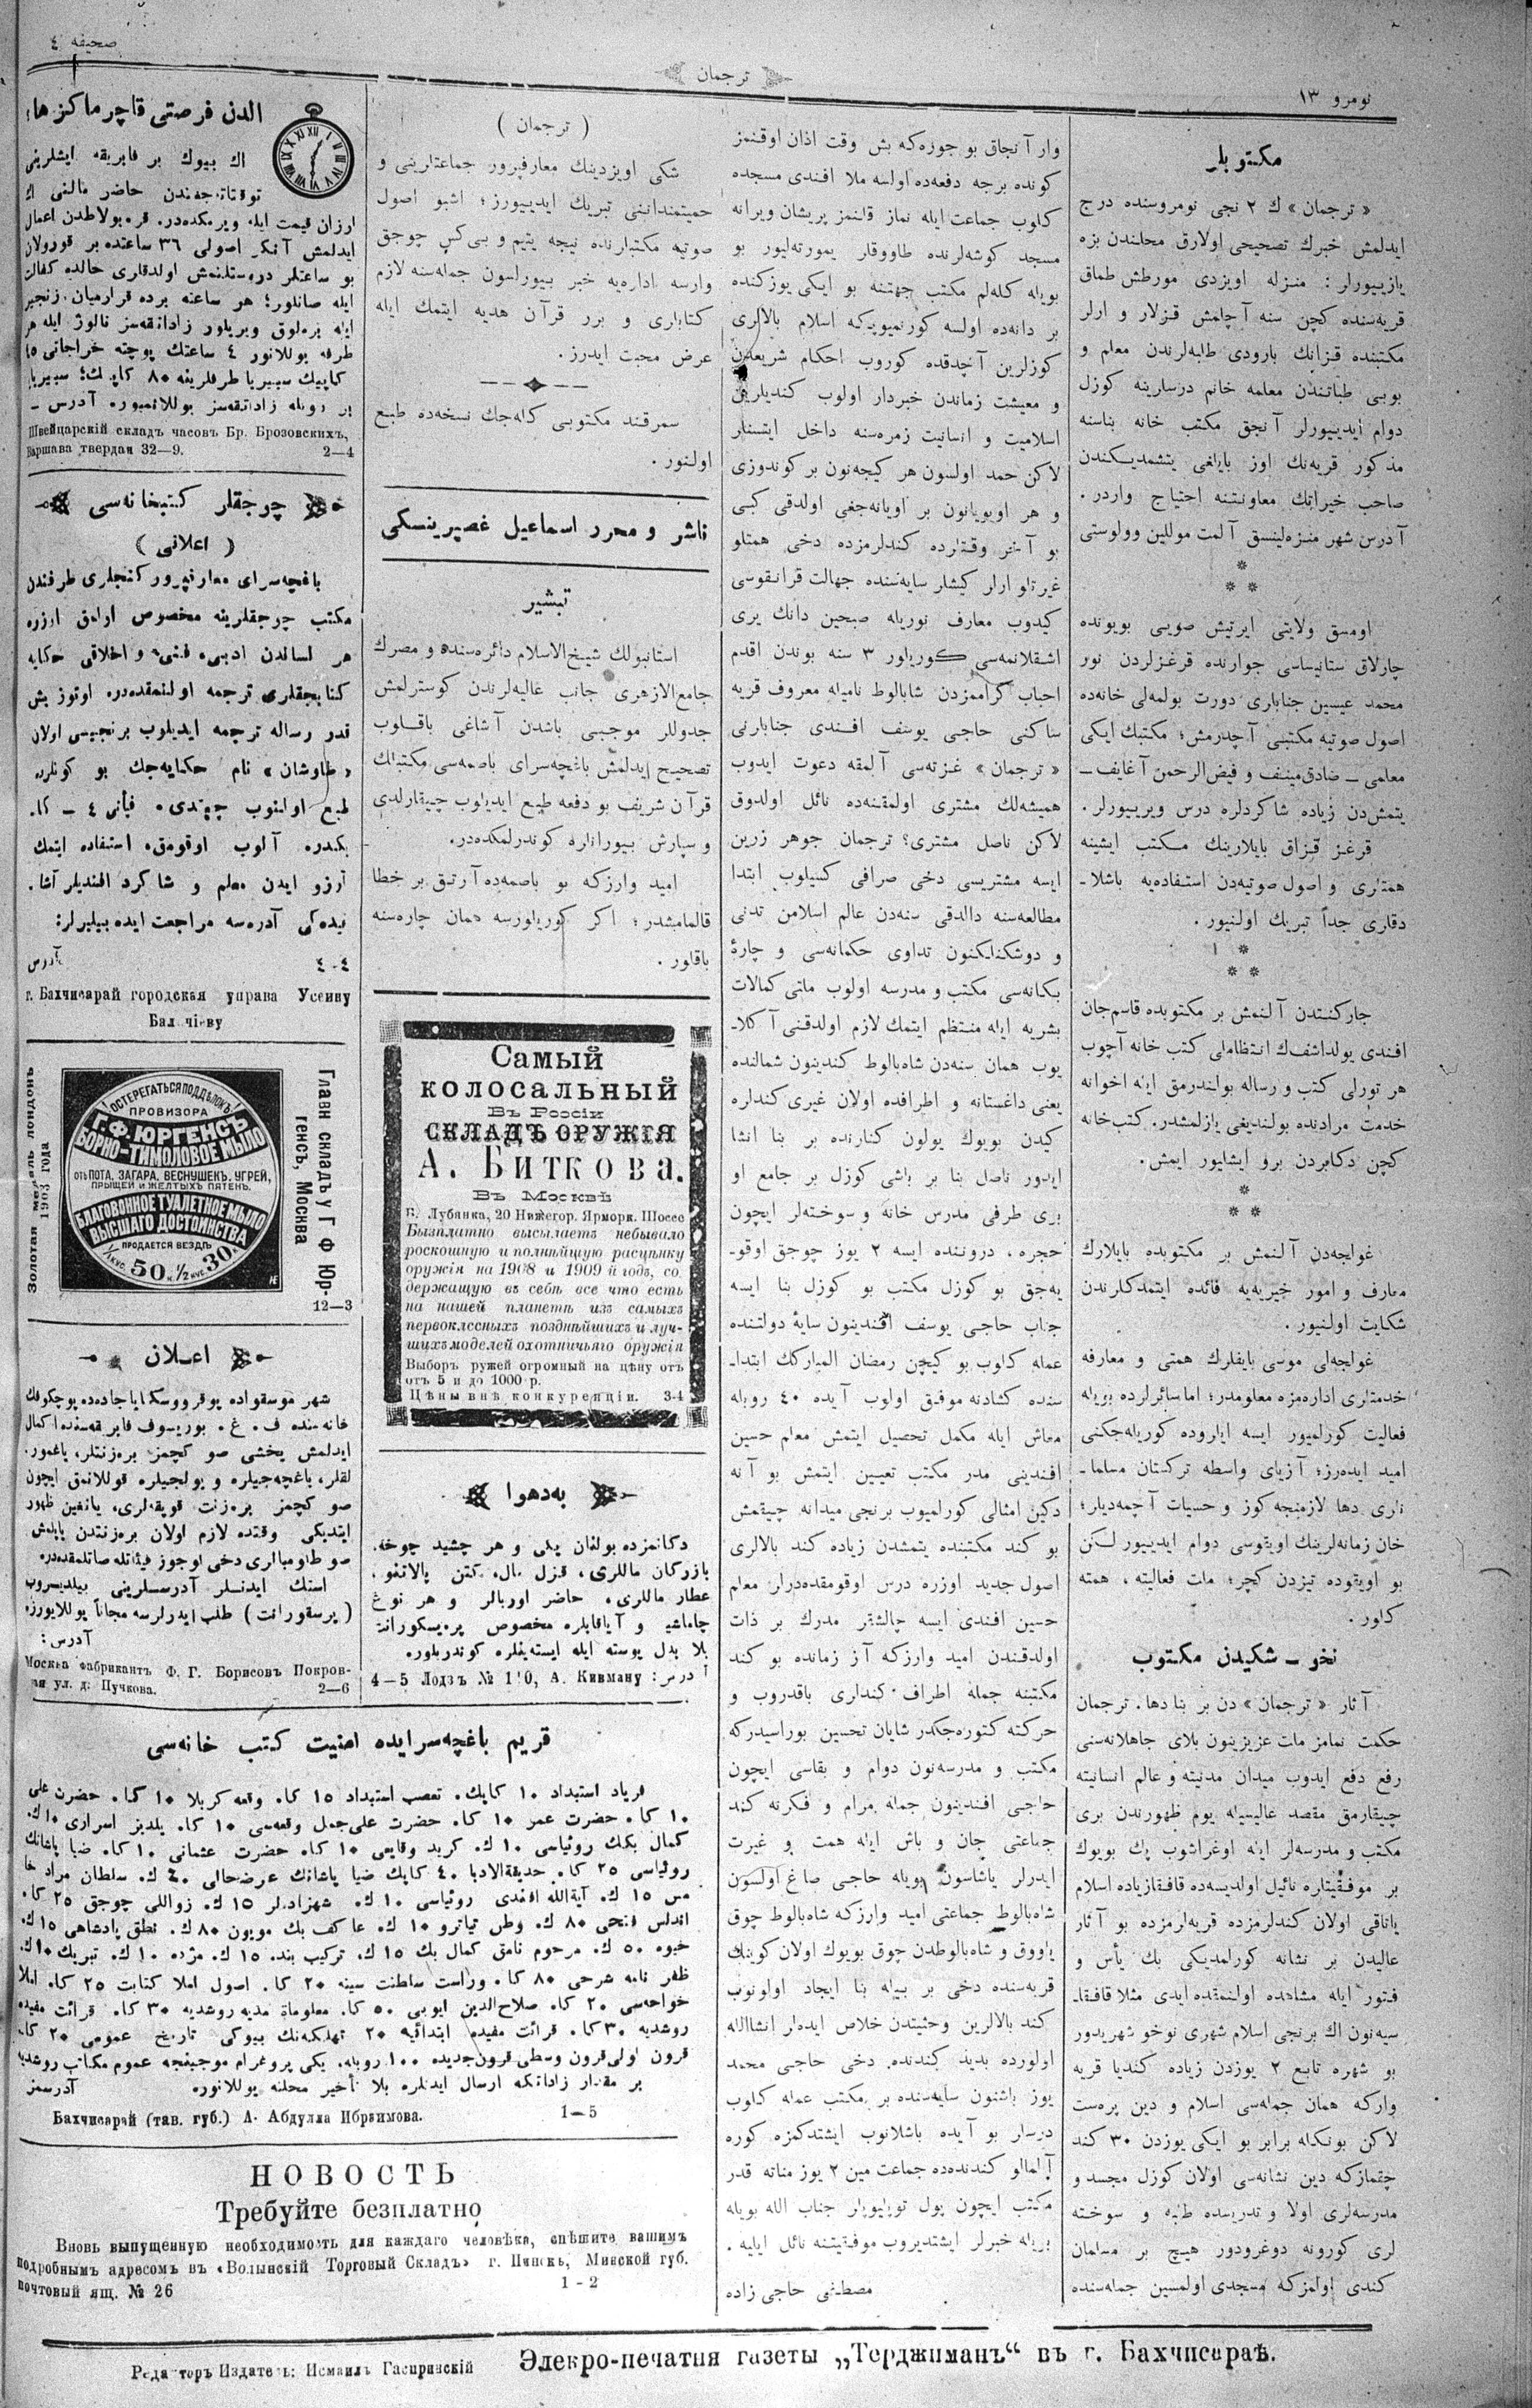 نومرو ١٣
ترجمان
صحيفه ٤
مكتوبلر
«ترجمان» ك ٢ نجی نومروسنده درج
ايدلمش خبرك تصحيحی اولارق محلندن بزه
يازييورلر: منزله اويزدی مورطش طماق
قريه‌سنده كچن سنه آچلمش قزلار و ارلر
مكتبنده قزانك بارودی طلبه‌لرندن معلم و
بوبی طباتندن معلمه خانم درسارينه كوزل
دوام ايدييورلر آنجق مكتب خانه بناسنه
مذكور قريه‌نك اوز بايلغی يتشمديكندن
صاحب خيراتك معاونتنه احتياج واردر.
آدرس شهر منزه‌لينسق آلمت موللين وولوستی
اومسق ولايتی ايرتيش صويی بويونده
چارلاق ستانيساسی جوارنده قرغزلردن نور
محمد عيسين جنابلری دورت بولمه‌لی خانه‌ده
اصول صوتيه مكتبی آچدرمش؛ مكتبك ايكی
معلمی ــ صادق مينف و فيض الرحمن آغايف ــ
يتمش‌دن زياده شاكردلره درس ويرييورلر.
قرغز قزاق بايلارينك مكتب ايشينه
همتلری و اصول صوتيه‌دن استفاده‌يه باشلا-
دقلری جداً تبريك اولنيور.
جاركنتدن آلنمش بر مكتوبده قاسم‌جان
افندی يولداشفك انتظاملی كتب خانه آچوب
هر تورلی كتب و رساله بولندرمق ايله اخوانه
خدمت مرادنده بولنديغی يازلمشدر. كتب‌خانه
كچن دكابردن برو ايشليور ايمش.
غولجه‌دن آلنمش بر مكتوبده بايلارك
معارف و امور خيريه‌يه فائده ايتمدكلرندن
شكايت اولنيور.
غولجه‌لی موسی بايفلرك همتی و معارفه
خدمتلری اداره‌مزه معلومدر؛ اما سائرلرده بويله
فعاليت كورلميور ايسه ايلروده كوريله‌جكنی
اميد ايده‌رز؛ آزيای واسطه تركستان مسلما-
نلری دها لازمنجه كوز و حسيات آچمه‌ديلر؛
خان زمانه‌لرينك اويقوسی دوام ايدييور لكن
بو اويقوده تيزدن كچر؛ ملت فعاليته، همته
كلور.
نخو ــ شكيدن مكتوب
آثار «ترجمان» دن بر بنا دها. ترجمان
حكمت نمامز ملت عزيزينون بلای جاهلانه‌سنی
رفع دفع ايدوب ميدان مدنيته و عالم انسانيته
چيقارمق مقصد عاليسيله يوم ظهورندن بری
مكتب و مدرسه‌لر ايله اوغراشوب پك بويوك
بر موفقيتلره نائيل اولديسه‌ده قافقازياده اسلام
ياتاقی اولان كندلرمزده قريه‌لرمزده بو آثار
عاليدن بر نشانه كورلمديكی بك يأس و
فتور ايله مشاهده اولنمقده ايدی مثلا قافقا-
سيه‌نون اك برنجی اسلام شهری نوخو شهريدور
بو شهره تابع ٢ يوزدن زياده كنديا قريه
واركه همان جمله‌سی اسلام و دين پره‌ست
لاكن بونكله برابر بو ايكی يوزدن ٣٠ كند
چقمازكه دين نشانه‌سی اولان كوزل مجسد و
مدرسه‌لری اولا و تدريسده طلبه و سوخته
لری كورونه دوغرودور هيچ بر مسلمان
كندی اولمزكه مسجدی اولمسين جمله‌سنده
وار آنجاق بو جوزه‌كه بش وقت اذان اوقنمز
كونده برجه دفعه‌ده اولسه ملا افندی مسجده
كلوب جماعت ايله نماز قلنمز پريشان ويرانه
مسجد كوشه‌لرنده طاووقلر يمورته‌ليور بو
بويله كله‌لم مكتب جهتنه بو ايكی يوز كنده
بر دانه‌ده اولسه كورنميوركه اسلام بالالری
كوزلرين آچدقده كوروب احكام شريعتدن
و معيشت زماندن خبردار اولوب كنديلرين
اسلاميت و انسانيت زمره‌سنه داخل ايتسنلر
لاكن حمد اولسون هر كيجه‌نون بر كوندوزی
و هر اويويانون بر اويانه‌جغی اولدقی كبی
بو آخر وقتلرده كندلرمزده دخی همتلو
غيرتلو ارلر كيشلر سايه‌سنده جهالت قرانقوسی
كيدوب معارف نوريله صبحين دانك يری
اشقلانمه‌سی كوريلور ٣ سنه بوندن اقدم
احباب كراممزدن شابالوط ناميله معروف قريه
ساكنی حاجی يوسف افندی جنابلرنی
«ترجمان» غزته‌سی آلمقه دعوت ايدوب
هميشه‌لك مشتری اولمقنه‌ده نائل اولدوق
لاكن ناصل مشتری؟ ترجمان جوهر زرين
ايسه مشتريسی دخی صرافی كسيلوب ابتدا
مطالعه‌سنه دالدقی سنه‌دن عالم اسلامن تدنی
و دوشكنلكنون تداوی حكمانه‌سی و چارهٔ
يكانه‌سی مكتب و مدرسه اولوب ملتی كمالات
بشريه ايله منتظم ايتمك لازم اولدقنی آكلا-
يوب همان سنه‌دن شاه‌بالوط كندينون شمالنده
يعنی داغستانه و اطرافده اولان غيری كندلره
كيدن بويوك يولون كنارنده بر بنا انشا
ايدور ناصل بنا بر باشی كوزل بر جامع او
بری طرفی مدرس خانه و سوخته‌لر ايچون
حجره، دروننده ايسه ٢ يوز چوجق اوقو-
يه‌جق بو كوزل مكتب بو كوزل بنا ايسه
جناب حاجی يوسف افندينون سايهٔ دولتنده
عمله كلوب بو كيچن رمضان المباركك ابتدا-
سنده كشادنه موفق اولوب آيده ٤٠ روبله
معاش ايله مكمل تحصيل ايتمش معلم حسين
افندينی مدر مكتب تعيين ايتمش بو آنه
دكين امثالی كورلميوب برنجی ميدانه چيقمش
بو كند مكتبنده يتمشدن زياده كند بالالری
اصول جديد اوزره درس اوقومقده‌درلر معلم
حسين افندی ايسه چالشقر مدرك بر ذات
اولدقندن اميد وارزكه آز زمانده بو كند
مكتبنه جمله اطراف كندلری باقدروب و
حركته كتوره‌جكدر شايان تحسين بوراسيدركه
مكتب و مدرسه‌نون دوام و بقاسی ايچون
حاجی افندينون جمله مرام و فكرنه كند
جماعتی جان و باش ايله همت و غيرت
ايدرلر ياشاسون بويله حاجی صاغ اولسون
شاه‌بالوط جماعتی اميد وارزكه شاه‌بالوط چوق
ياووق و شاه‌بالوطدن چوق بويوك اولان كوينك
قريه‌سنده دخی بر بيله بنا ايجاد اولونوب
كند بالالرين وحثيتدن خلاص ايده‌لر انشاالله
اولورده بديد كندنده دخی حاجی محمد
يوز باشنون سايه‌سنده بر مكتب عمله كلوب
درسلر بو آيده باشلانوب ايشتدكمزه كوره
آلمالو كندنده‌ده جماعت مين ٢ يوز مناته قدر
مكتب ايچون پول توپليولر جناب الله بويله
بويله خبرلر ايشتديروب موفقيتنه نائل ايليه.
مصطفی حاجی زاده
(ترجمان)
شكی اويزدينك معارفپرور جماعتلرينی و
حميتمندانی تبريك ايدييورز؛ اشبو اصول
صوتيه مكتبلرنده نيجه يتيم و بی‌كس چوجق
وارسه اداره‌يه خبر بيورلسون جمله‌سنه لازم
كتابلری و برر قرآن هديه ايتمك ايله
عرض محبت ايدرز.
سمرقند مكتوبی كله‌جك نسخه‌ده طبع
اولنور.
ناشر و محرر اسماعيل غصپرينسكی
تبشير
استانبولك شيخ الاسلام دائره‌سنده و مصرك
جامع الازهری جانب عاليه‌لرندن كوسترلمش
جدوللر موجبی باشدن آشاغی باقلوب
تصحيح ايدلمش باغچه‌سرای باصمه‌سی مكتبلك
قرآن شريف بو دفعه طبع ايديلوب چيقارلدی
و سپارش بيورانلره كوندرلمكده‌در.
اميد وارزكه بو باصمه‌ده آرتق بر خطا
قالمامشدر؛ اكر كوريلورسه همان چاره‌سنه
باقلور.
Самый
колосальный
Въ Россіи
СКЛАДЪ ОРУЖІЯ
А. Биткова.
Въ Москвѣ
Б. Лубянка, 20 Нижегор. Ярморк. Шоссе
Бызплатно высылаетъ небывало
роскошную и полнѣйщую расцѣнку
оружія на 1908 и 1909 й годъ, со
держащую въ себѣ все что есть
на нашей планетѣ изъ самыхъ
первоклссныхъ позднѣйшихъ и луч-
шихъ моделей охотничьяго оружія
Выборъ ружей огромный на цѣну отъ
отъ 5 и до 1000 р.
Цѣны внѣ конкуренціи. 3-4
به‌دهوا
دكانمزده بولنان يكی و هر چشيد چوخه،
بازركان ماللری، قزل مال، كتن پالاتنو،
عطار ماللری، حاضر اوربالر و هر نوع
چاماشير و آياقابلره مخصوص پره‌يسكورانت
بلا بدل پوسته ايله ايسته‌ينلره كوندريلور.
آدرس: 4-5 Лодзъ № 110, А. Кивману
الدن فرصتی قاچرماكز ها!
اك بيوك بر فابريقه ايشلرينی
توقتاتمه‌جغندن حاضر مالنی اك
ارزان قيمت ايله ويرمكده‌در. قره بولاطدن اعمال
ايدلمش آنكر اصولی ٣٦ ساعتده بر قورولان
بو ساعتلر درستلنمش اولدقلری حالده كفالت
ايله صاتلور؛ هر ساعته برده قرارميان زنجير
ايله بره‌لوق ويريلور زاداتقه‌سز نالوژ ايله هر
طرفه يوللانور ٤ ساعتك پوچته خراجاتی ٧٥
كاپيك سيبريا طرفلرينه ٨٠ كاپك؛ سيبريا
بر روبله زاداتقه‌سز يوللانميور. آدرس ــ
Швейцарскій складъ часовъ Бр. Брозовскихъ,
Варшава твердая 32—9. 2—4
چوجقلر كتبخانه‌سی
(اعلانی)
باغچه‌سرای معارفپرور كنجلری طرفندن
مكتب چوجقلرينه مخصوص اولمق اوزره
هر لساندن ادبی، فنی، و اخلاقی حكايه
كتابجقلری ترجمه اولنمقده‌در. اوتوز بش
قدر رساله ترجمه ايديلوب برنجيسی اولان
«طاوشان» نام حكايه‌جك بو كونلرده
طبع اولنوب چيقدی. فياتی ٤ ــ كا.
بكدر. آلوب اوقومق، استفاده ايتمك
آرزو ايدن معلم و شاكرد افنديلر آشا-
غيده‌كی آدره‌سه مراجعت ايده بيليرلر:
٤-٤ آدرس
г. Бахчисарай городская управа Усеину
Балчіеву
Золотая медаль Лондонъ
1903 года
ОСТЕРЕГАТЬСЯ ПОДДѢЛОКЪ!
ПРОВИЗОРА
Г.Ф. ЮРГЕНСЪ
БОРНО-ТИМОЛОВОЕ МЫЛО
отъ ПОТА, ЗАГАРА, ВЕСНУШЕКЪ, УГРЕЙ,
ПРЫЩЕЙ И ЖЕЛТЫХЪ ПЯТЕНЪ.
БЛАГОВОННОЕ ТУАЛЕТНОЕ МЫЛО
ВЫСШАГО ДОСТОИНСТВА
ПРОДАЕТСЯ ВЕЗДѢ
1/1 КУС. 50 к. 1/2 КУС. 30 к.
Главн складъ у Г Ф Юр-
генсъ, Москва
12—3
اعلان
شهر موسقواده پوقرووسكايا جاده‌ده پوچكوفك
خانه‌سنده ف. غ. بوريسوف فابريقه‌سنده اكمال
ايدلمش يخشی صو كچمز بره‌زنتلر، ياغمور-
لقلر، باغچه‌جيلره و يولجيلره قوللانمق ايچون
صو كچمز بره‌زنت قويقه‌لری، يانغين ظهور
ايتديكی وقتده لازم اولان بره‌زنتدن ياپلمش
صو طلومبالری دخی اوجوز فيئاتله صاتلمقده‌در.
استك ايدنلر آدرسلرينی بيلديروب
(پرسقورانت) طلب ايدرلرسه مجاناً يوللايورز.
آدرس:
Москва фабрикантъ Ф. Г. Борисовъ Покров-
ая ул. д: Пучкова. 2—6
قريم باغچه‌سرايده امنيت كتب خانه‌سی
فرياد استبداد ١٠ كاپك. تعصب استبداد ١٥ كا. وقعه كربلا ١٠ كا. حضرت علی
١٠ كا. حضرت عمر ١٠ كا. حضرت علی جمل وقعه‌سی ١٠ كا. يلديز اسراری ١٠ ك.
كمال بكك روئياسی ١٠ ك. كريد وقايعی ١٠ كا. حضرت عثمانی ١٠ كا. ضيا پاشانك
روئياسی ٢٥ كا. حديقة الادبا ٤٠ كاپك ضيا پاشانك عرضحالی ٤٠ ك. سلطان مراد خا
مس ١٥ ك. آية‌الله افندی روئياسی ١٠ ك. شهزادلر ١٥ ك. زواللی چوجق ٢٥ كا.
اندلس فتحی ٨٠ ك. وطن تياترو ١٠ ك. عاكف بك مويون ٨٠ ك. نطق پادشاهی ١٥ ك.
خيوه ٥٠ ك. مرحوم نامق كمال بك ١٥ ك. تركيب بند. ١٥ ك. مژده ١٠ ك. تبريك ١٠ ك.
ظفر نامه شرحی ٨٠ كا. وراست سلطنت سينه ٢٠ كا. اصول املا كتابت ٢٥ كا. املا
خواجه‌سی ٢٠ كا. صلاح‌الدين ايوبی ٥٠ كا. معلوماة مدنيه روشديه ٣٠ كا. قرائت مفيده
روشديه ٣٠ كا. قرائت مفيده ابتدائيه ٢٠ تهلكه‌نك بيوكی تاريخ عمومی ٢٠ كا.
قرون اولی قرون وسطی قرون جديده ١٠٠ روبله. يكی پروغرام موجبنجه عموم مكاتب روشديه
بر مقدار زاداتكه ارسال ايدنلره بلا تأخير محلنه يوللانور. آدرسمز
Бахчисарай (тав. губ.) А. Абдулла Ибраимова. 1—5
НОВОСТЬ
Требуйте безплатно
Вновь выпущенную необходимость для каждаго человѣка, спѣшите вашимъ
подробнымъ адресомъ въ «Волынскій Торговый Складъ» г. Пинскъ, Минской губ.
почтовый ящ. № 26 1-2
Редакторъ Издатель: Исмаилъ Гаспринскій
Элекро-печатня газеты „Терджиманъ“ въ г. Бахчисараѣ.